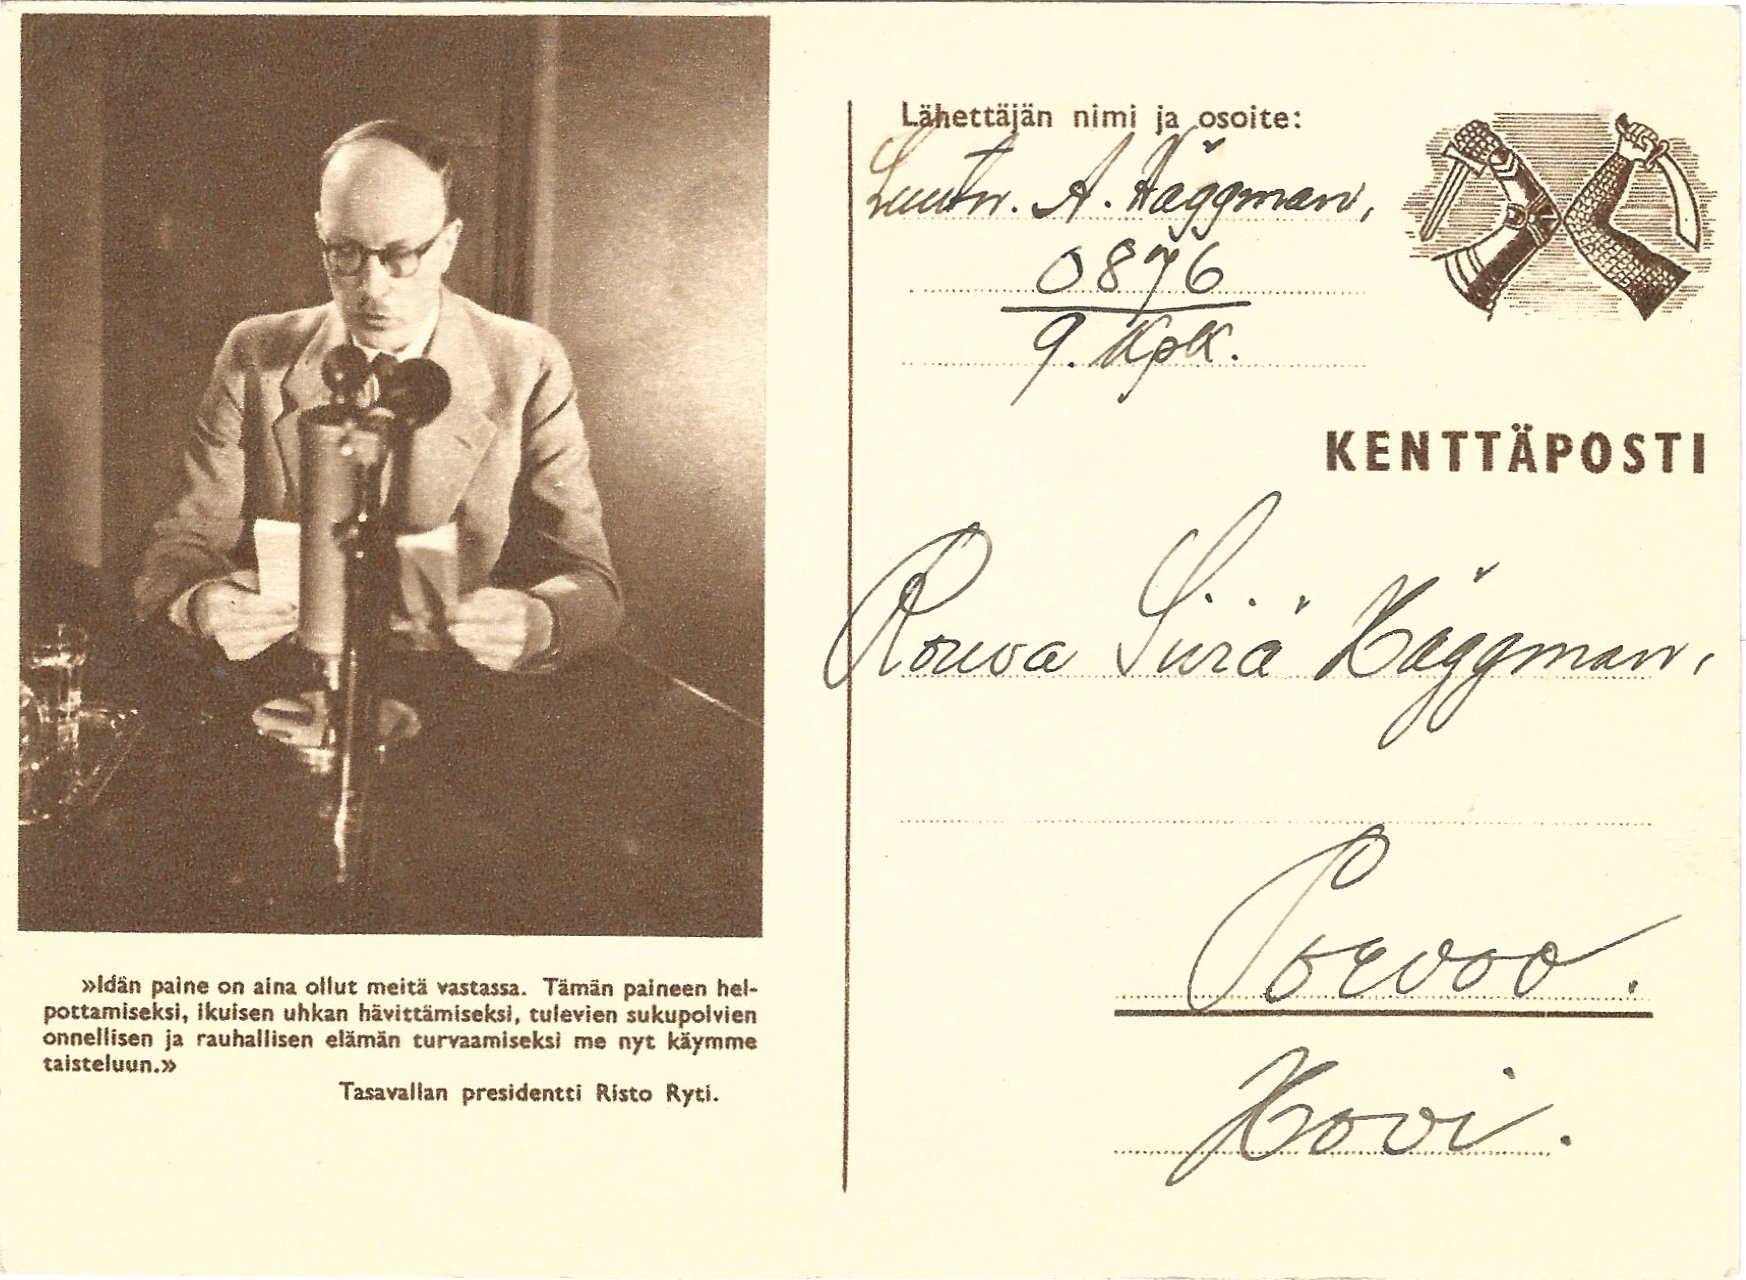 »Idän paine on aina ollut meitä vastassa. Tämän paineen hel-
pottamiseksi, ikuisen uhkan hävittämiseksi, tulevien sukupolvien
onnellisen ja rauhallisen elämän turvaamiseksi me nyt käymme
taisteluun.»
Tasavallan presidentti Risto Ryti.
Lähettäjän nimi ja osoite:
Luutn. A. Häggman,
0876
9. Kpk.
KENTTÄPOSTI
Rouva Siirä Häggman,
Porvoo.
Hovi.